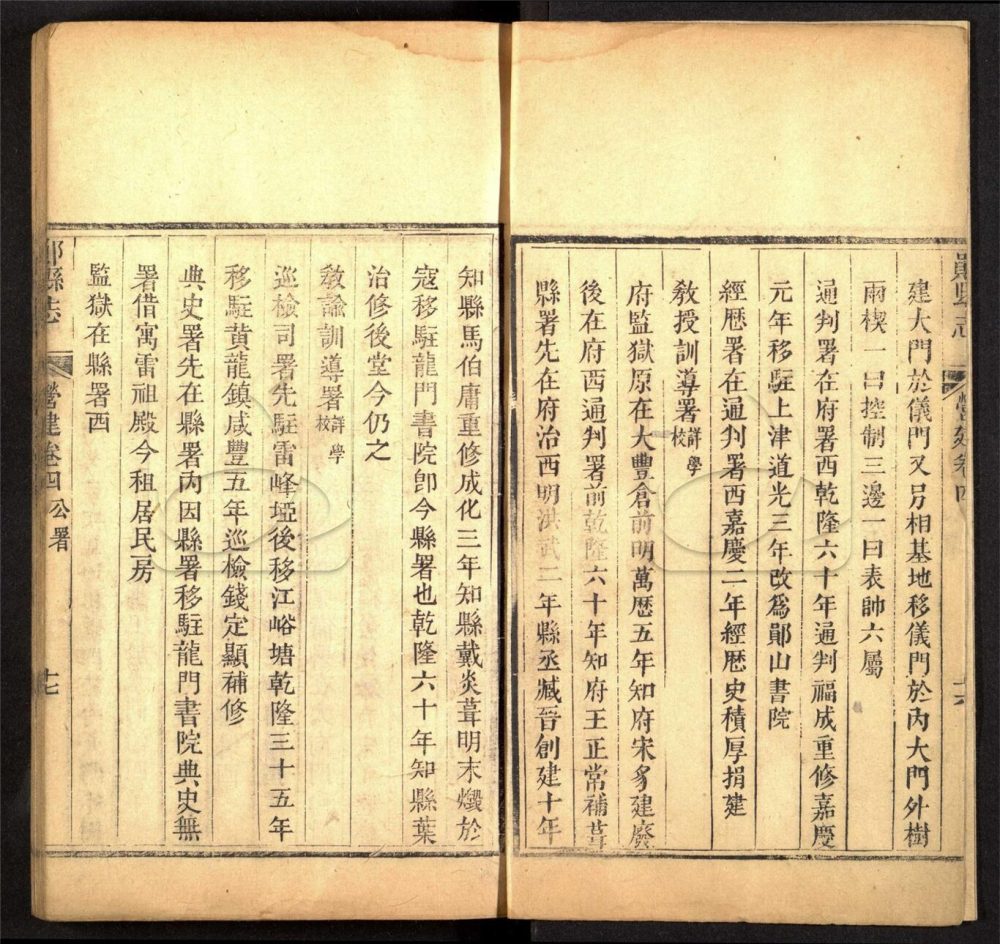 鄖縣志 營建卷四
建大門於儀門又另相基地移儀門於內大門外樹
兩楔一曰控制三邊一曰表帥六屬
通判署在府署西乾隆六十年通判福成重修嘉慶
元年移駐上津道光三年改爲鄖山書院
經歷署在通判署西嘉慶二年經歷史積厚捐建
教授訓導署詳學校
府監獄原在大豐倉前明萬歷五年知府宋豸建廢
後在府西通判署前乾隆六十年知府王正常補葺
縣署先在府治西明洪武二年縣丞臧晉創建十年
知縣馬伯庸重修成化三年知縣戴炎葺明末燬於
寇移駐龍門書院卽今縣署也乾隆六十年知縣葉
治修後堂今仍之
教諭訓導署詳學校
巡檢司署先駐雷峰埡後移江峪塘乾隆三十五年
移駐黃龍鎮咸豐五年巡檢錢定顯補修
典史署先在縣署內因縣署移駐龍門書院典史無
署借寓雷祖殿今租居民房
監獄在縣署西
鄖縣志 營建卷四 公署 十七